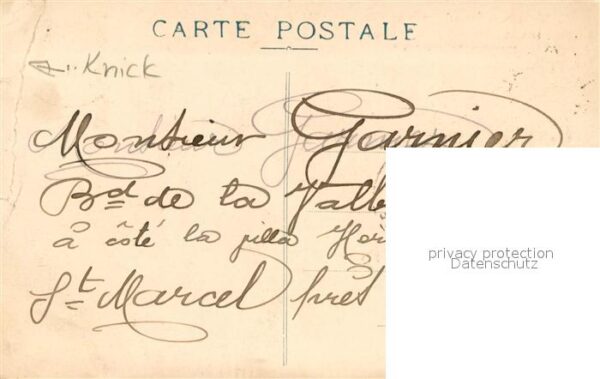 CARTE POSTALE
Knick
Monsieur Garnier
Bd de la
à côté la
St Marcel près
privacy protection
Datenschutz